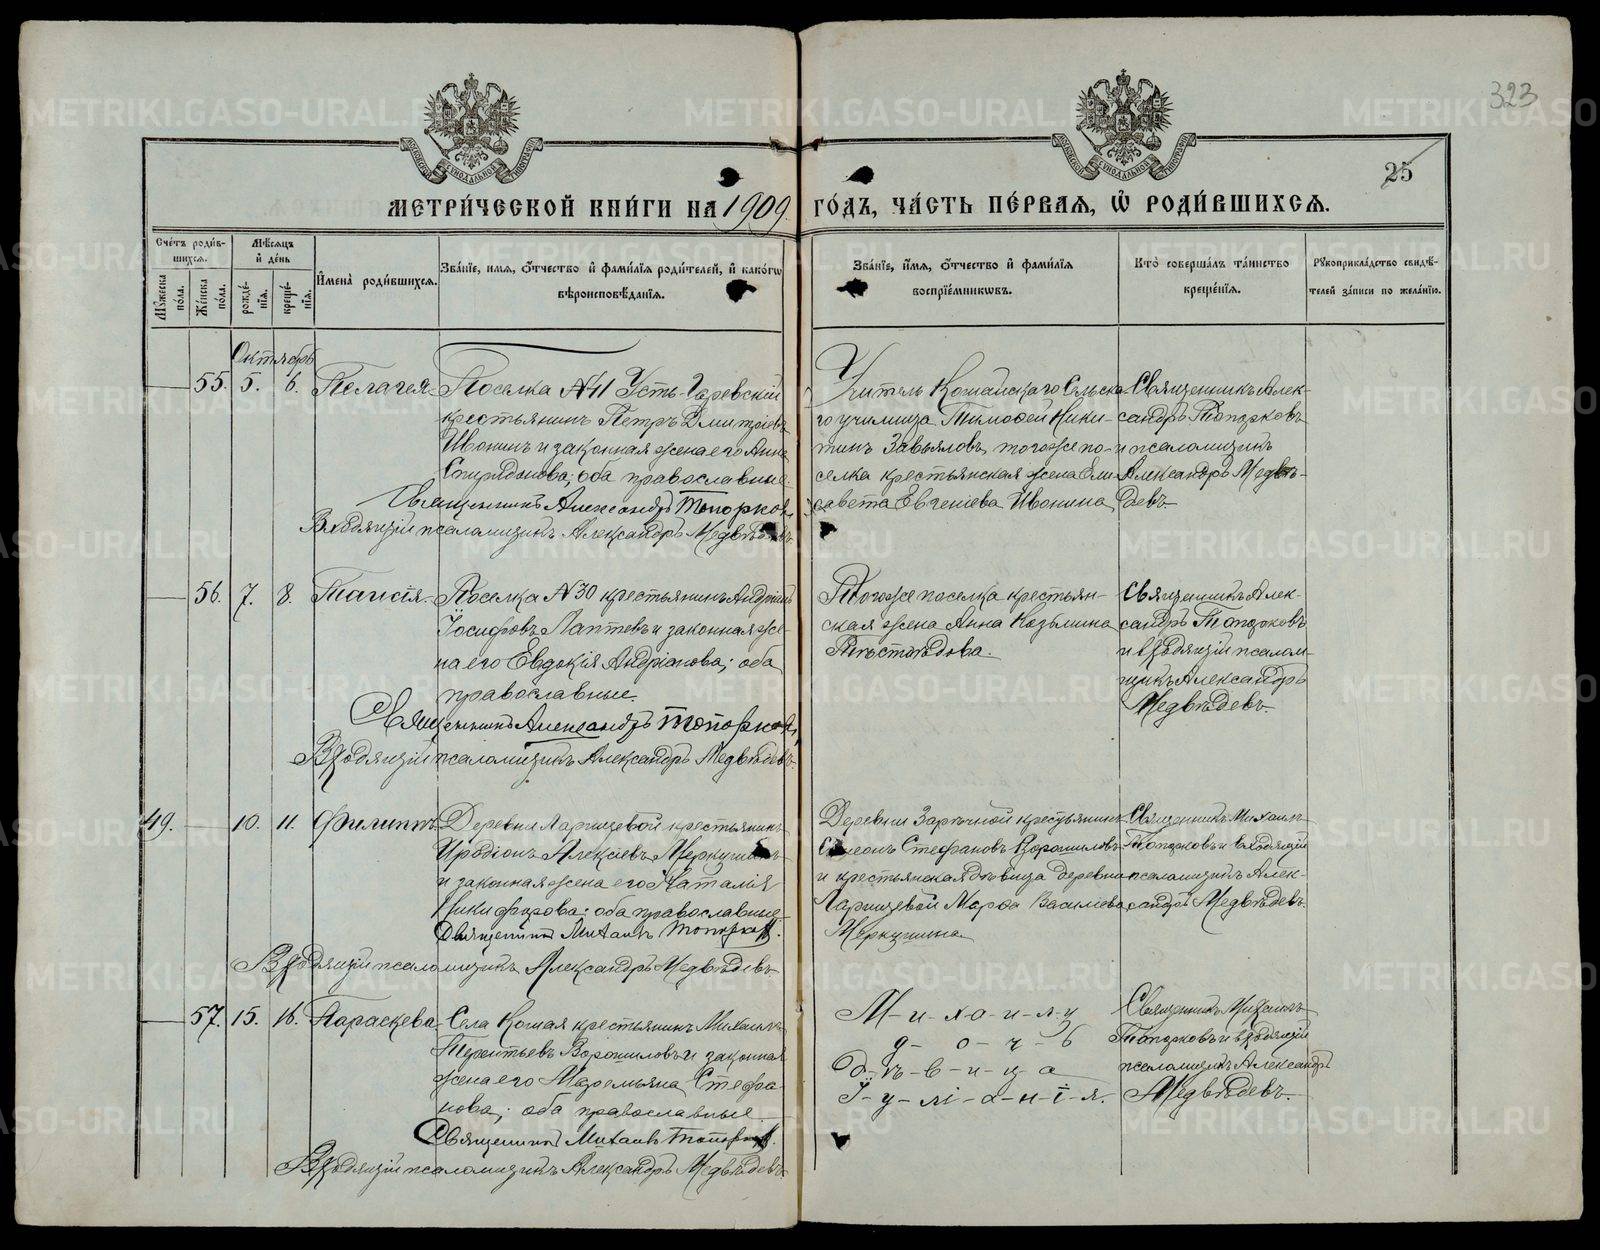 323
25
МЕТРИ́ЧЕСКОЙ КНИ́ГИ НА 1909 ГО́ДЪ, ЧА́СТЬ ПЕ́РВАѦ, Ѡ҆ РОДИ́ВШИХСѦ.
Сче́тъ роди́в-
шихсѧ.
Мꙋ́жеска по́ла.
Же́нска по́ла.
Мѣ́сѧцъ
и҆ де́нь
рожде́-
нїѧ.
креще́-
нїѧ.
И҆мена̀ роди́вшихсѧ.
Зва́нїе, и҆́мѧ, ѻ҆́тчество и҆ фами́лїѧ роди́телей, и҆ како́гѡ
вѣроисповѣ́данїѧ.
Зва́нїе, и҆́мѧ, ѻ҆́тчество и҆ фами́лїѧ
воспрїе́мникѡвъ.
Кто̀ соверша́лъ та́инство
креще́нїѧ.
Рꙋкоприкла́дство свидѣ́-
телей за́писи по жела́нїю.
Октябрь
55. 5. 6. Пелагея
Поселка №11 Усть-Гаревскій
крестьянинъ Петръ Дмитріевъ
Ивонинъ и законная жена его Анна
Спиридонова; оба православные.
Священникъ Александръ Топорков
Псаломщикъ Александръ Медвѣдевъ.
Учитель Кошайскаго Сельска-
го училища Тимофей Ники-
тинъ Завьяловъ, тогоже по-
селка крестьянская жена Ели-
савета Евгеніева Ивонина
Священникъ Алек-
сандръ Топорковъ
и псаломщикъ
Александръ Медвѣ-
девъ
56. 7. 8. Таисія
Поселка №30 крестьянинъ Андріанъ
Іосифовъ Лаптевъ и законная же-
на его Евдокія Андріанова; оба
православные.
Священникъ Александръ Топорков
псаломщикъ Александръ Медвѣдевъ.
Тогоже поселка крестьян-
ская жена Анна Козьмина
Священникъ Алек-
сандръ Топорковъ
и псалом-
щикъ Александръ
Медвѣдевъ.
49. 10. 11. Филиппъ
Деревни Ларищевой крестьянинъ
Иродіонъ Алексіевъ Меркушинъ
и законная жена его Наталія
Никифорова; оба православные
Священникъ Михаилъ Топорков.
псаломщикъ Александръ Медвѣдевъ
Деревни Заречной крестьянинъ
Симеонъ Стефановъ Ворошиловъ
и крестьянская дѣвица деревни
Ларищевой Марѳа Василіева
Меркушина
Священникъ Михаилъ
Топорковъ и
псаломщикъ Алек-
сандръ Медвѣдевъ.
57. 15. 16. Параскева
Села Кошая крестьянинъ Михаилъ
Терентьевъ Ворошиловъ и законная
жена его Маремьяна Стефа-
нова; оба православные
Священникъ Михаилъ Топорков.
псаломщикъ Александръ Медвѣдевъ
М-и-ха-и-л-у
д-о-ч-ь
Д-ѣ-в-и-ц-а
І-у-лі-а-н-і-я.
Священникъ Михаилъ
Топорковъ и
псаломщикъ Александръ
Медвѣдевъ.
METRIKI.GASO-URAL.RU